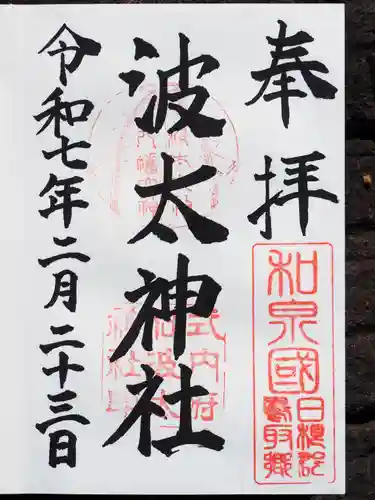 奉拝
和泉國
日根郡
鳥取郷
波太神社
式内府
社波太
神社
令和七年二月二十三日